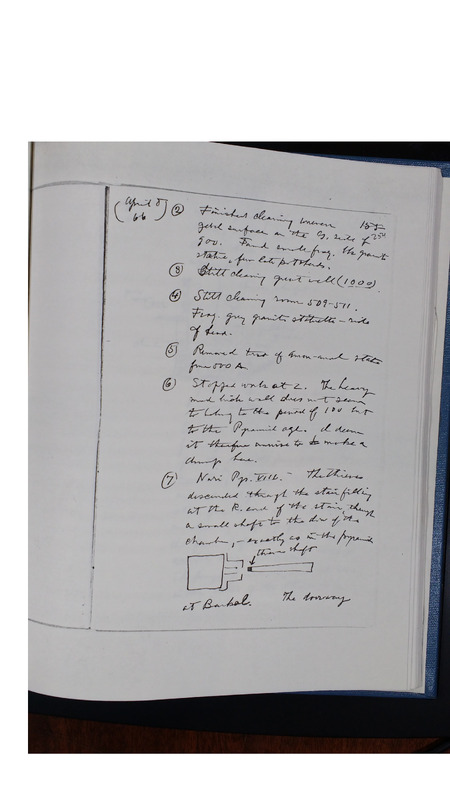 (April 8) ② Finished clearing uneven 155-
66 gebel surface on the S. side of 250
900. Found small frag. blk granite
statue, few late potsherds.
③ Still clearing great well (1000).
④ Still clearing room 509-511.
Frag. grey granite statuette - side
of head.
⑤ Removed head of ram statue
from 500 A.
⑥ Stopped work at 2. The heavy
mud brick wall does not seem
to belong to the period of 100 but
to the Pyramid age. I deem
it therefore unwise to make a
dump here.
⑦ Nuri Pyr. XIII. - The thieves
descended through the stair filling
at the E. end of the stair, through
a small shaft to the door of the
chamber, - exactly as in the pyramids
thieves shaft
at Barkal. The doorway